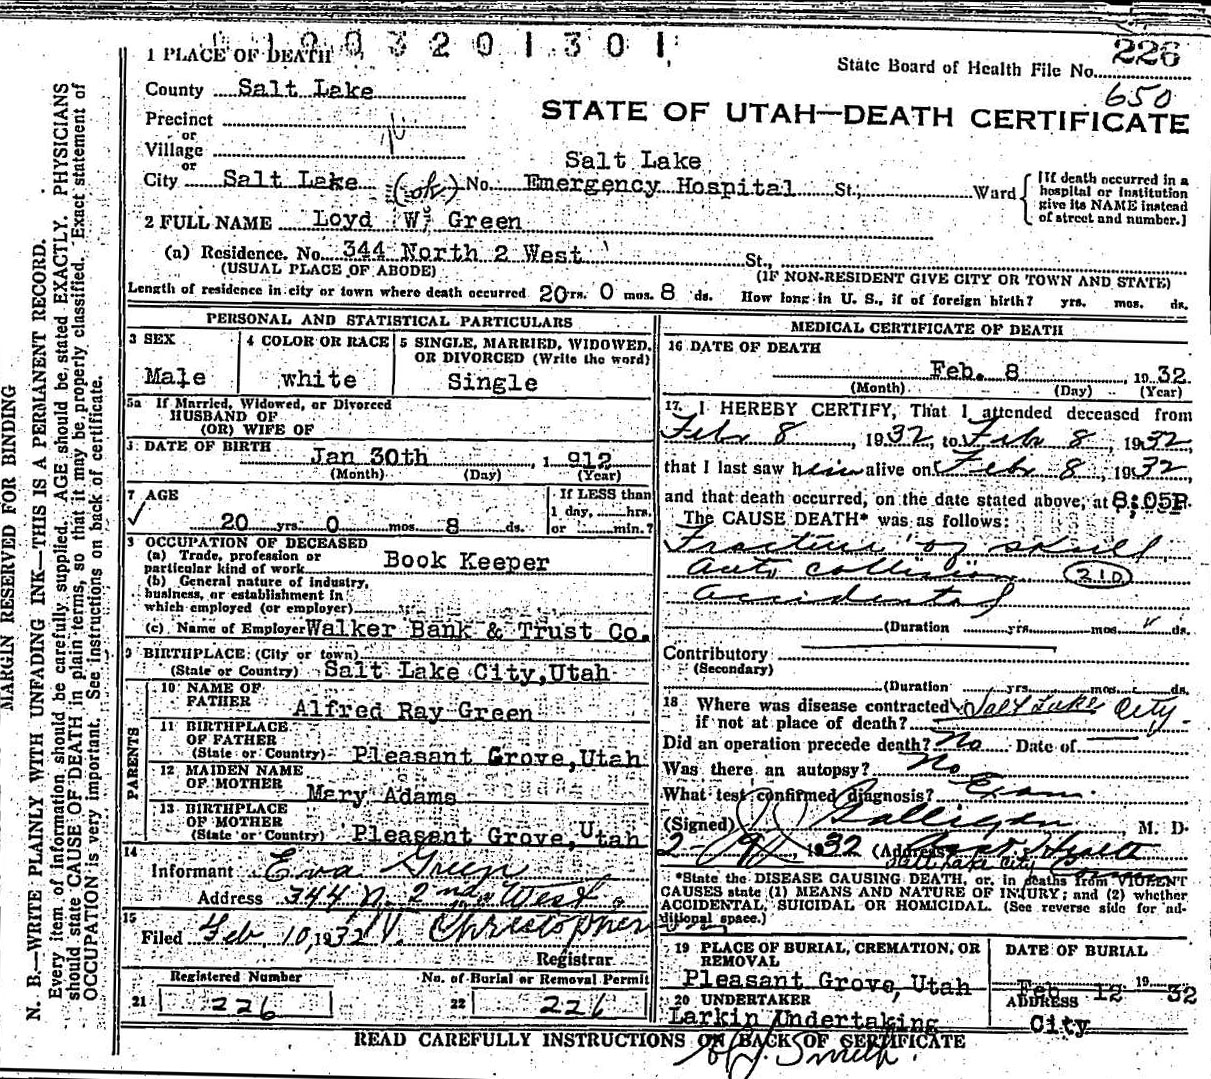 0 1 0 0 3 2 0 1 3 0 1
226
State Board of Health File No.
650
1 PLACE OF DEATH
County Salt Lake
STATE OF UTAH—DEATH CERTIFICATE
Precinct
or
Village
or
City Salt Lake (ok) No. Salt Lake Emergency Hospital St., Ward
[If death occurred in a
hospital or institution
give its NAME instead
of street and number.]
2 FULL NAME Loyd W. Green
(a) Residence. No. 344 North 2 West St.,
(USUAL PLACE OF ABODE) (IF NON-RESIDENT GIVE CITY OR TOWN AND STATE)
Length of residence in city or town where death occurred 20 yrs. 0 mos. 8 ds. How long in U. S., if of foreign birth? yrs. mos. ds.
PERSONAL AND STATISTICAL PARTICULARS
3 SEX
Male
4 COLOR OR RACE
white
5 SINGLE, MARRIED, WIDOWED,
OR DIVORCED (Write the word)
Single
5a If Married, Widowed, or Divorced
HUSBAND OF
(OR) WIFE OF
DATE OF BIRTH Jan 30th, 1 912
(Month) (Day) (Year)
7 AGE
20 yrs. 0 mos. 8 ds.
If LESS than
1 day, hrs.
or min.?
OCCUPATION OF DECEASED
(a) Trade, profession or
particular kind of work Book Keeper
(b) General nature of industry,
business, or establishment in
which employed (or employer)
(c) Name of Employer Walker Bank & Trust Co.
9 BIRTHPLACE: (City or town)
(State or Country) Salt Lake City, Utah
PARENTS
10 NAME OF
FATHER Alfred Ray Green
11 BIRTHPLACE
OF FATHER
(State or Country) Pleasant Grove, Utah
12 MAIDEN NAME
OF MOTHER Mary Adams
13 BIRTHPLACE
OF MOTHER
(State or Country) Pleasant Grove, Utah
14
Informant Eva Green
Address 344 N. 2nd West
15
Filed Feb 10, 1932 Christopherson
Registrar
Registered Number
21 226
No. of Burial or Removal Permit
22 226
MEDICAL CERTIFICATE OF DEATH
16 DATE OF DEATH
Feb. 8, 1932
(Month) (Day) (Year)
17. I HEREBY CERTIFY, That I attended deceased from
Feb 8, 1932, to Feb 8, 1932,
that I last saw him alive on Feb 8, 1932,
and that death occurred, on the date stated above, at 8:05P.
The CAUSE DEATH* was as follows:
Fracture of skull
Auto collision 210
Accidental
(Duration yrs. mos. ds.
Contributory
(Secondary)
(Duration yrs. mos. ds.
18 Where was disease contracted
if not at place of death? Salt Lake City.
Did an operation precede death? No Date of
Was there an autopsy? No
What test confirmed diagnosis? Exam.
(Signed) Galligan, M. D.
2-9, 1932 (Address) Health
Salt Lake City
*State the DISEASE CAUSING DEATH, or, in deaths from VIOLENT
CAUSES state (1) MEANS AND NATURE OF INJURY; and (2) whether
ACCIDENTAL, SUICIDAL OR HOMICIDAL. (See reverse side for ad-
ditional space.)
19 PLACE OF BURIAL, CREMATION, OR
REMOVAL
Pleasant Grove, Utah
DATE OF BURIAL
Feb 12 1932
20 UNDERTAKER
Larkin Undertaking
ADDRESS
City
READ CAREFULLY INSTRUCTIONS ON BACK OF CERTIFICATE
Smith.
MARGIN RESERVED FOR BINDING
N. B.—WRITE PLAINLY WITH UNFADING INK—THIS IS A PERMANENT RECORD.
Every item of information should be carefully supplied. AGE should be stated EXACTLY. PHYSICIANS
should state CAUSE OF DEATH in plain terms, so that it may be properly classified. Exact statement of
OCCUPATION is very important. See instructions on back of certificate.